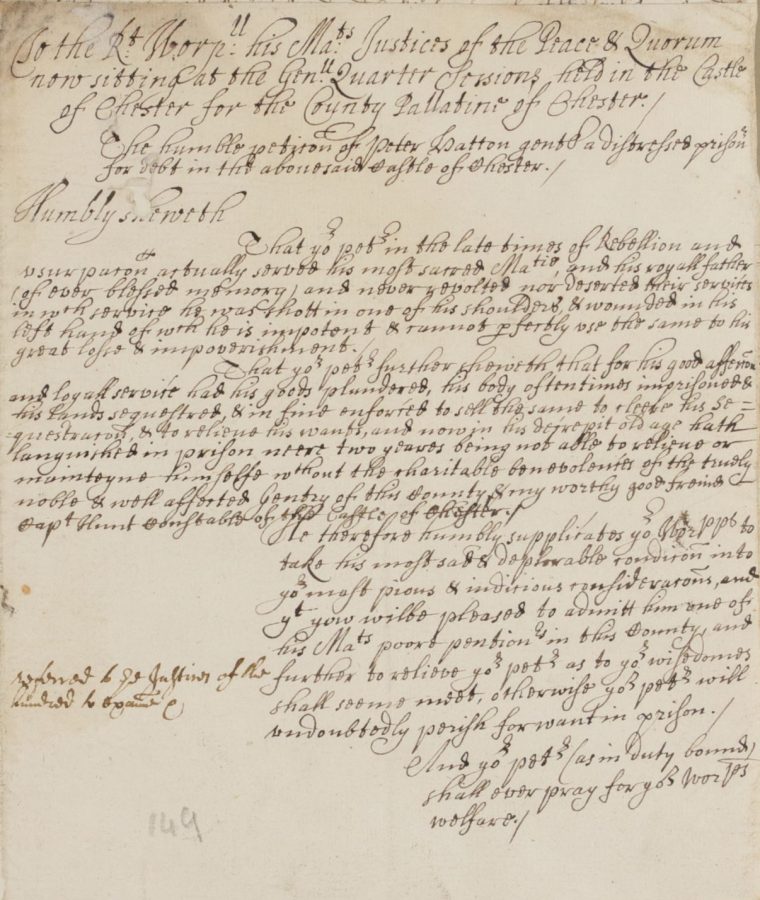 To the Rt. Worpll: his Mats. Justices of the Peace & Quorum
now sitting at the Genll: Quarter Sessions, held in the Castle
of Chester for the County Pallatine of Chester./
The humble peticon of Peter Hatton gent a distressed prisonr
for debt in the abovesaid Castle of Chester./
Humbly sheweth
That yor petr in the late times of Rebellion and
usurpacon actually served his most sacred Matie, and his royall father
(of ever blessed memory) and never revolted nor deserted their services
in wch service he was shott in one of his shoulders, & wounded in his
left hand of wch he is impotent & cannot perfectly use the same to his
great losse & impoverishment./
That yor petr further sheweth that for his good affeccon
and loyall service had his goods plundered, his body oftentimes imprisoned &
his Lands sequestred, & in fine enforced to sell the same to cleere his Se=
=questracon, & to relieve his wants, and now in his decrepit old age hath
languished in prison neere two yeares being not able to relieve or
mainteyne himselfe wthout the charitable benevolencies of the truely
noble & well affected Gentry of this County, & my worthy good freind
Capt Hunt Constable of this Castle of Chester./
He therefore humbly supplicates yor Worpps to
take his most sad & deplorable condicon into
yor most pious & iudicious consideracons, and
yt yow wilbe pleased to admitt him one of
his Mats poore pentionrs in this County, and
further to relieve yor petr as to yor wisedomes
shall seeme meet, otherwise yor petr will
undoubtedly perish for want in prison./
And yor petr (as in duty bound)
shall ever pray for yor Worpps
welfare./
referred to ye Justices of the
hundred to examine
149